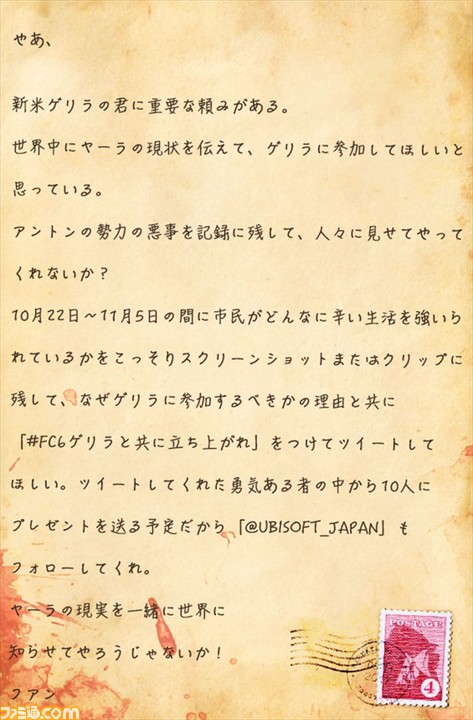 やあ、
新米ゲリラの君に重要な頼みがある。
世界中にヤーラの現状を伝えて、ゲリラに参加してほしいと
思っている。
アントンの勢力の悪事を記録に残して、人々に見せてやって
くれないか?
10月22日~11月5日の間に市民がどんなに辛い生活を強いら
れているかをこっそりスクリーンショットまたはクリップに
残して、なぜゲリラに参加するべきかの理由と共に
「#FC6ゲリラと共に立ち上がれ」をつけてツイートして
ほしい。ツイートしてくれた勇気ある者の中から10人に
プレゼントを送る予定だから「@UBISOFT_JAPAN」も
フォローしてくれ。
ヤーラの現実を一緒に世界に
知らせてやろうじゃないか!
フアン
POSTAGE
4
ファミ通.com